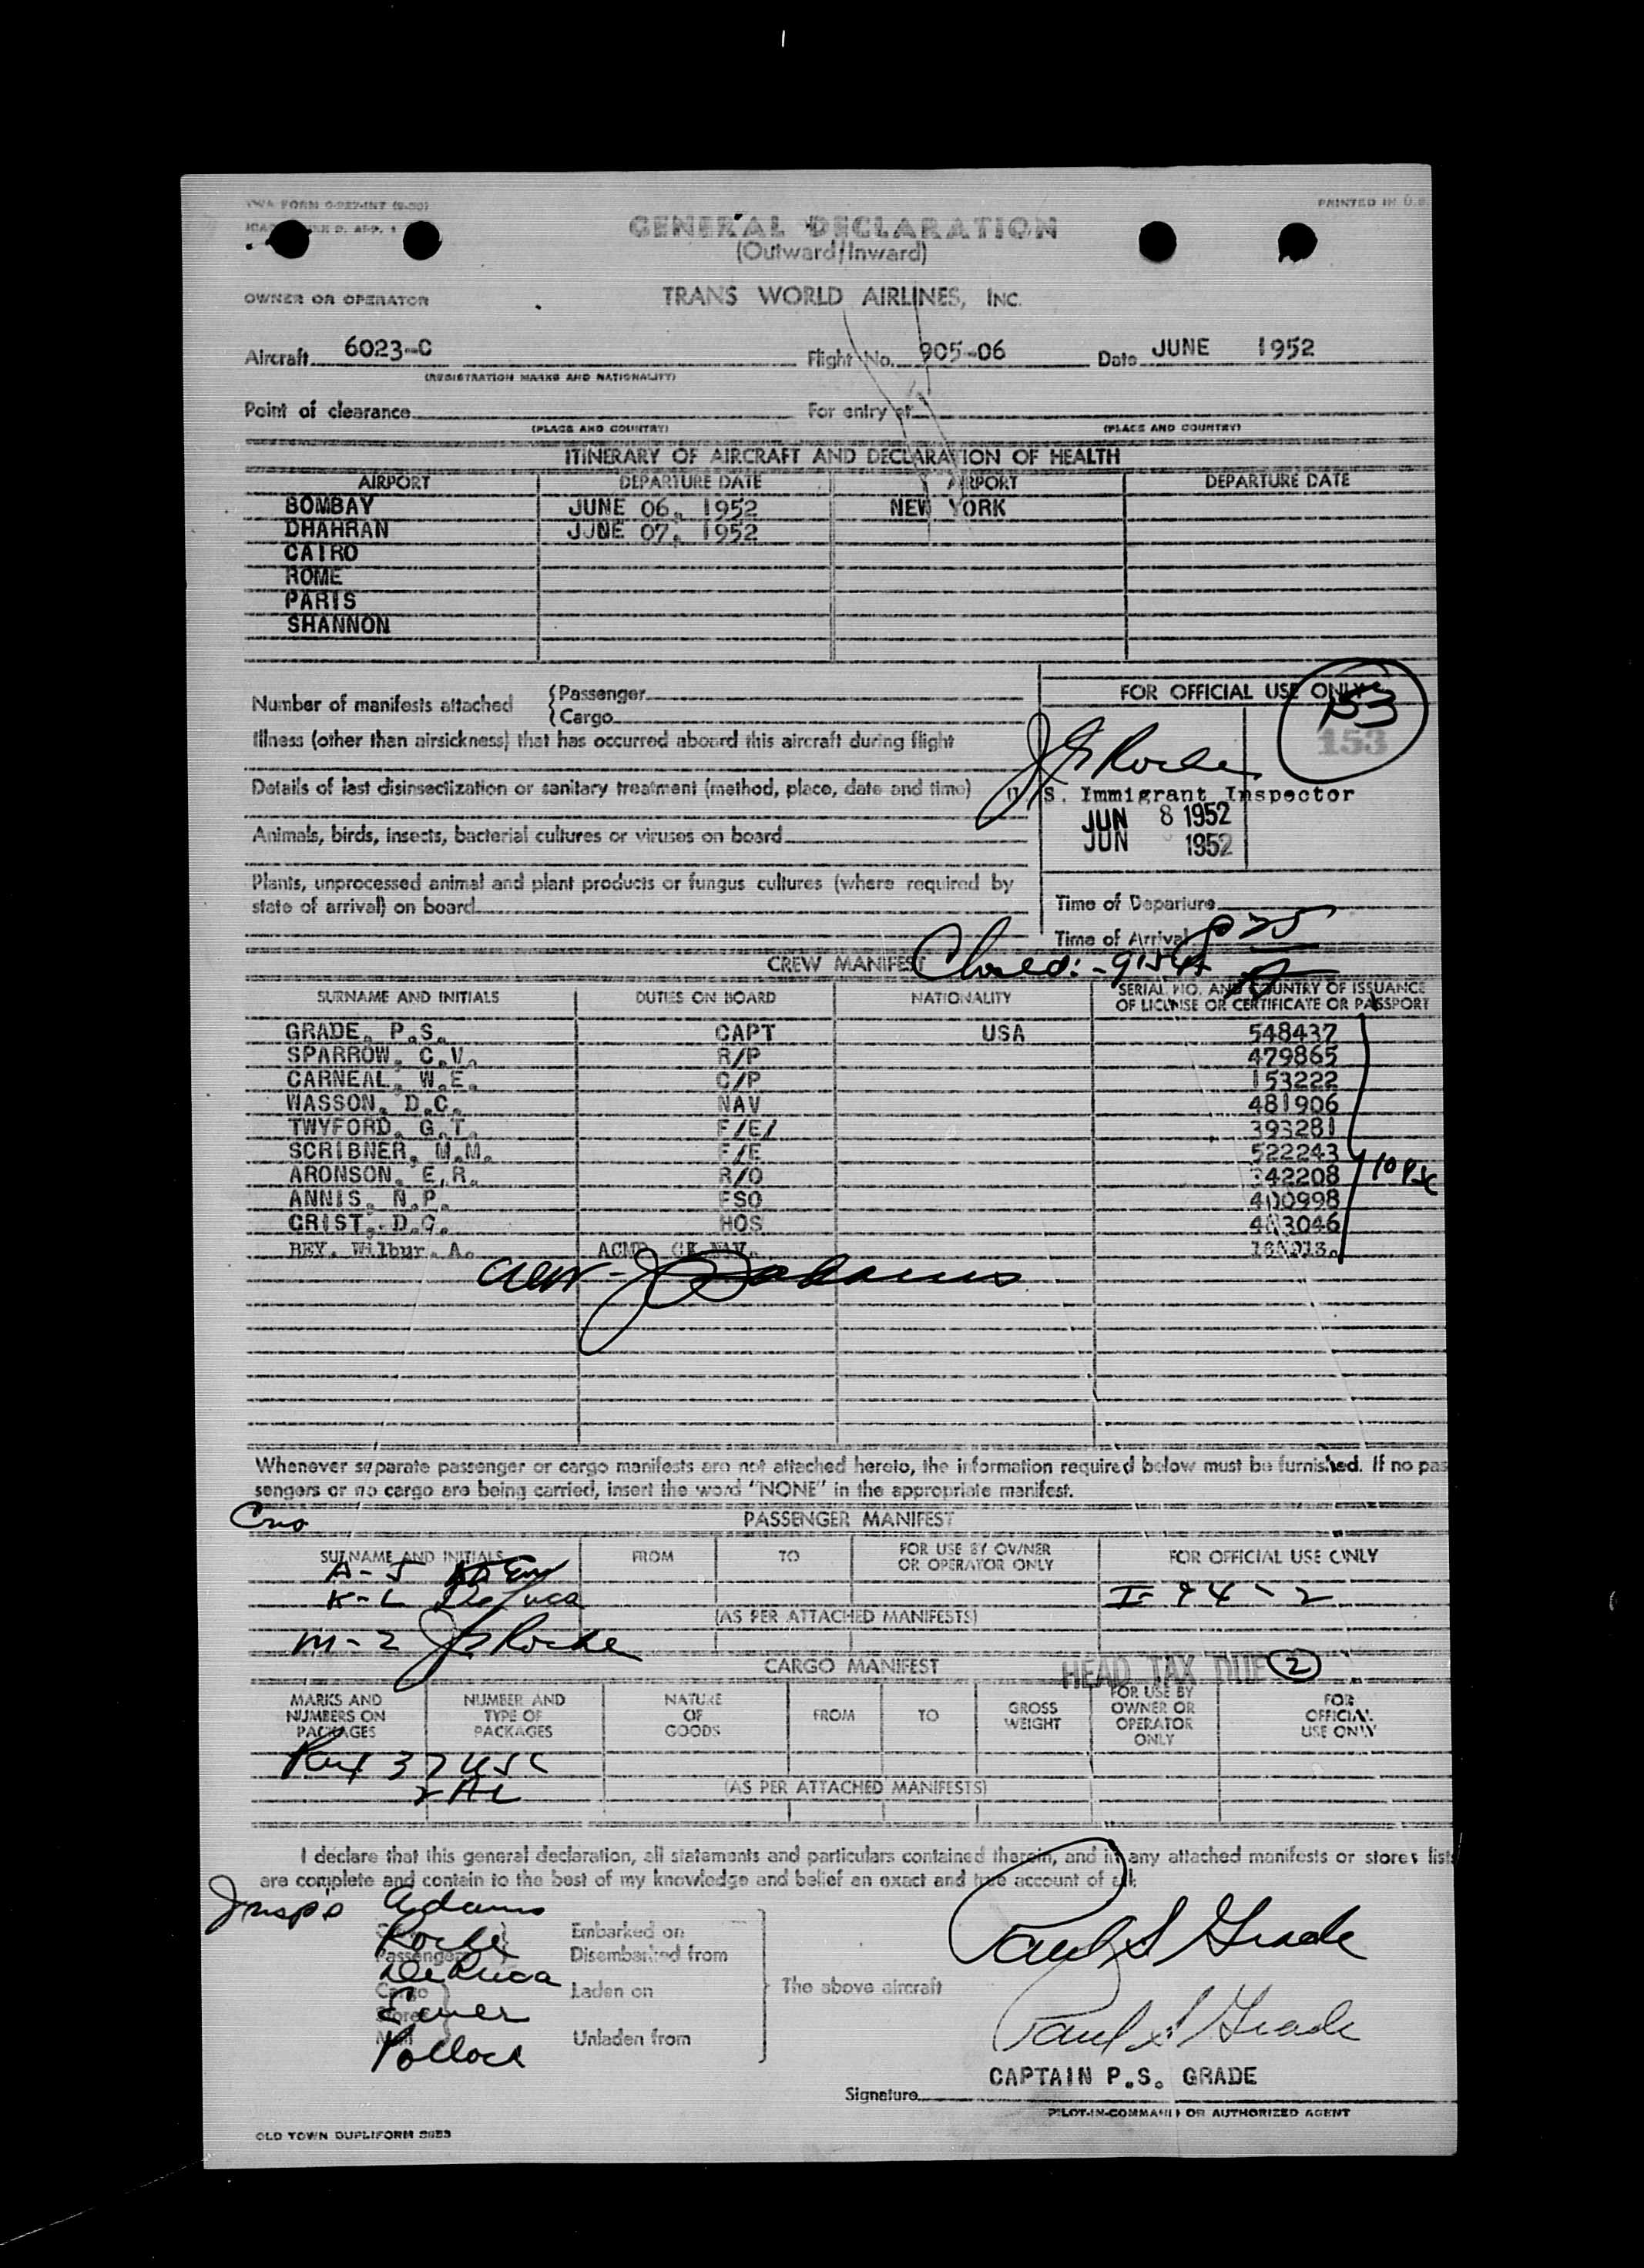 TWA FORM
PRINTED IN U.S.
GENERAL DECLARATION
(Outward/Inward)
OWNER OR OPERATOR TRANS WORLD AIRLINES, INC.
Aircraft 6023-C Flight No. 905-06 Date JUNE 1952
(REGISTRATION MARKS AND NATIONALITY)
Point of clearance For entry at
(PLACE AND COUNTRY) (PLACE AND COUNTRY)
ITINERARY OF AIRCRAFT AND DECLARATION OF HEALTH
AIRPORT DEPARTURE DATE AIRPORT DEPARTURE DATE
BOMBAY JUNE 06, 1952 NEW YORK
DHAHRAN JUNE 07, 1952
CAIRO
ROME
PARIS
SHANNON
Number of manifests attached {Passenger
{Cargo
FOR OFFICIAL USE ONLY
153
153
Illness (other than airsickness) that has occurred aboard this aircraft during flight
J Roche
Details of last disinsectization or sanitary treatment (method, place, date and time)
U.S. Immigrant Inspector
JUN 8 1952
JUN 1952
Animals, birds, insects, bacterial cultures or viruses on board
Plants, unprocessed animal and plant products or fungus cultures (where required by
state of arrival) on board
Time of Departure
Time of Arrival
CREW MANIFEST
SURNAME AND INITIALS DUTIES ON BOARD NATIONALITY SERIAL NO. AND COUNTRY OF ISSUANCE
OF LICENSE OR CERTIFICATE OR PASSPORT
GRADE, P.S. CAPT USA 548437
SPARROW, C.V. R/P 479865
CARNEAL, W.E. C/P 153222
WASSON, D.C. NAV 481906
TWYFORD, G.T. F/E/ 393281
SCRIBNER, M.M. F/E 522243
ARONSON, E.R. R/O 342208
ANNIS, N.P. FSO 400998
CRIST, D.C. HOS
REY, Wilbur, A.
Whenever separate passenger or cargo manifests are not attached hereto, the information required below must be furnished. If no pas
sengers or no cargo are being carried, insert the word "NONE" in the appropriate manifest.
PASSENGER MANIFEST
SURNAME AND INITIALS FROM TO FOR USE BY OWNER
OR OPERATOR ONLY
FOR OFFICIAL USE ONLY
A-J
K-L DeLuca
I-94-2
(AS PER ATTACHED MANIFESTS)
M-Z J Roche
CARGO MANIFEST
HEAD TAX DUE 2
MARKS AND
NUMBERS ON
PACKAGES
NUMBER AND
TYPE OF
PACKAGES
NATURE
OF
GOODS
FROM
TO
GROSS
WEIGHT
FOR USE BY
OWNER OR
OPERATOR
ONLY
FOR
OFFICIAL
USE ONLY
37 USC
2 AL
(AS PER ATTACHED MANIFESTS)
I declare that this general declaration, all statements and particulars contained therein, and in any attached manifests or stores lists
are complete and contain to the best of my knowledge and belief an exact and true account of all:
Insp's Adams
Roche
Passengers
DeLuca
Cargo
Stores
Mail
Pollock
Embarked on
Disembarked from
Laden on
Unladen from
The above aircraft
Paul S Grade
Paul S Grade
CAPTAIN P.S. GRADE
Signature
PILOT-IN-COMMAND OR AUTHORIZED AGENT
OLD TOWN DUPLIFORM